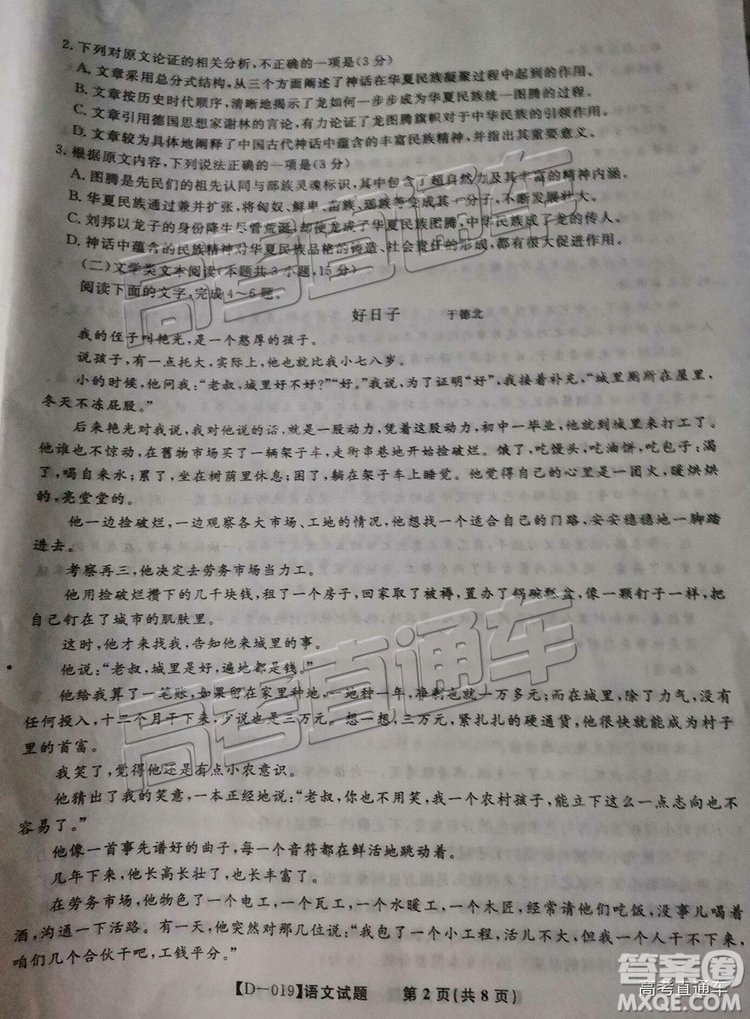 2. 下列对原文论证的相关分析,不正确的一项是(3分)
A. 文章采用总分式结构,从三个方面阐述了神话在华夏民族凝聚过程中起到的作用。
B. 文章按历史时代顺序,清晰地揭示了龙如何一步步成为华夏民族统一图腾的过程。
C. 文章引用德国思想家谢林的言论,有力论证了龙图腾旗帜对于中华民族的引领作用。
D. 文章较为具体地阐释了中国古代神话中蕴含的丰富民族精神,并肯定其重要意义。
3. 根据原文内容,下列说法正确的一项是(3分)
A. 图腾是先民们的祖先认同与部族灵魂标识,其中包蕴了超自然力及其丰富的精神内涵。
B. 华夏民族通过兼并扩张,将匈奴、鲜卑、苗族、瑶族等变成其中一份子,不断发展壮大。
C. 刘邦以龙子的身份降生尽管荒诞,却使龙成了华夏民族图腾,使中国人成了龙的传人。
D. 神话中蕴含的民族精神对华夏民族品格的铸造、社会的发展进步等,都有很大促进作用。
(二)文学类文本阅读(本题共3小题,15分)
阅读下面的文字,完成4～6题。
好日子 于德北
我的侄子叫艳光,是一个憨厚的孩子。
说孩子,有一点托大,实际上,他也就比我小七八岁。
小的时候,他问我:“老叔,城里好不好?”“好。”我说。为了证明“好”,我接着补充,“城里厕所在屋里,
冬天不冻屁股。”
后来艳光对我说,我对他说的话,就是一股动力,凭着这股动力,初中一毕业,他就到城里来打工了。
他谁也不惊动,在旧物市场买了一辆架子车,走街串巷地开始捡破烂。饿了,吃馒头、吃油饼、吃包子;渴
了,喝自来水;累了,坐在树荫里休息;困了,躺在架子车上睡觉。他说自己的心里是一团火,暖烘烘
的,亮堂堂的。
他一边捡破烂,一边观察各大市场、工地的情况,他想找一个适合自己的门路,安安稳稳地一脚踏
进去。
考察再三,他决定去劳务市场当力工。
他用捡破烂攒下的几千块钱,租了一个房子,回家取了被褥,置办了锅碗瓢盆,像一颗钉子一样,把
自己钉在了城市的肌肤里。
这时,他才来找我,告知他来城里的事。
他说:“老叔,城里是好,遍地都是钱。”
他给我算了一笔账,如果留在家里种地,一垧地一年,净剩也就一万多元;而在城里,除了力气,没有
任何投入,十二个月干下来,少说也是三万元。想一想,三万元,紧扎扎的硬通货,他很快就能成为村子
里的首富。
我笑了,觉得他还是有点小农意识。
他猜出了我的笑意,一本正经地说:“老叔,你也不用笑,我一个农村孩子,能立下这么一点志向也不
容易了。”
他像一首事先谱好的曲子,每一个音符都在鲜活地跳动着。
几年下来,他长高长壮了,也长丰富了。
在劳务市场,他物色了一个电工,一个瓦工,一个水暖工,一个木匠,经常请他们吃饭,没事儿喝着
酒,沟通一下活路。有一天,他突然对那几位说:“我包了一个小工程,活儿不大,但我一个人干不下来,
咱们几个合伙干吧,工钱平分。”
【D-019】语文试题 第2页(共8页)
高考直通车
高考直通车
答案圈
MXQE.COM
高考直通车